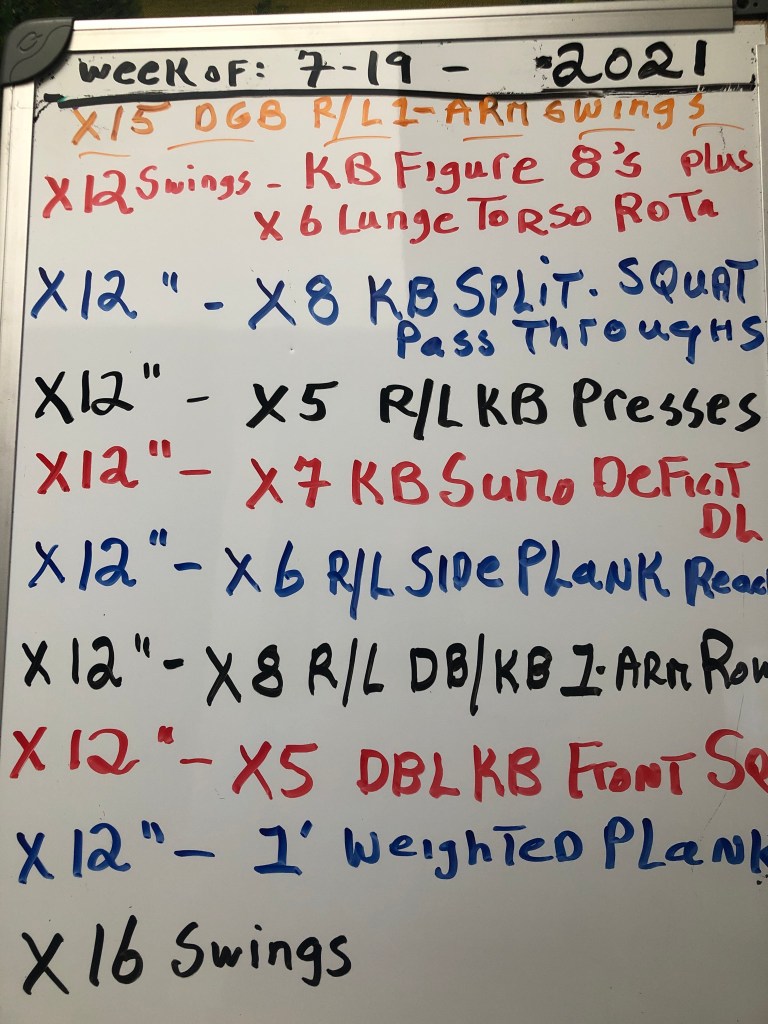 Week of: 7-19 - 2021
X15 DGB R/L 1-ARM Swings
X12 Swings - KB Figure 8's plus
X 6 Lunge Torso Rota
X12 " - X8 KB SPLIT. SQUAT
Pass Throughs
X12 " - X5 R/L KB Presses
X12 " - X7 KB Sumo DeFicit
DL
X12 " - X6 R/L SIDE PLANK Reac
X12 " - X8 R/L DB/KB 1-ARM Row
X12 " - X5 DBL KB Front SQ
X12 " - 1' Weighted PLank
X16 Swings